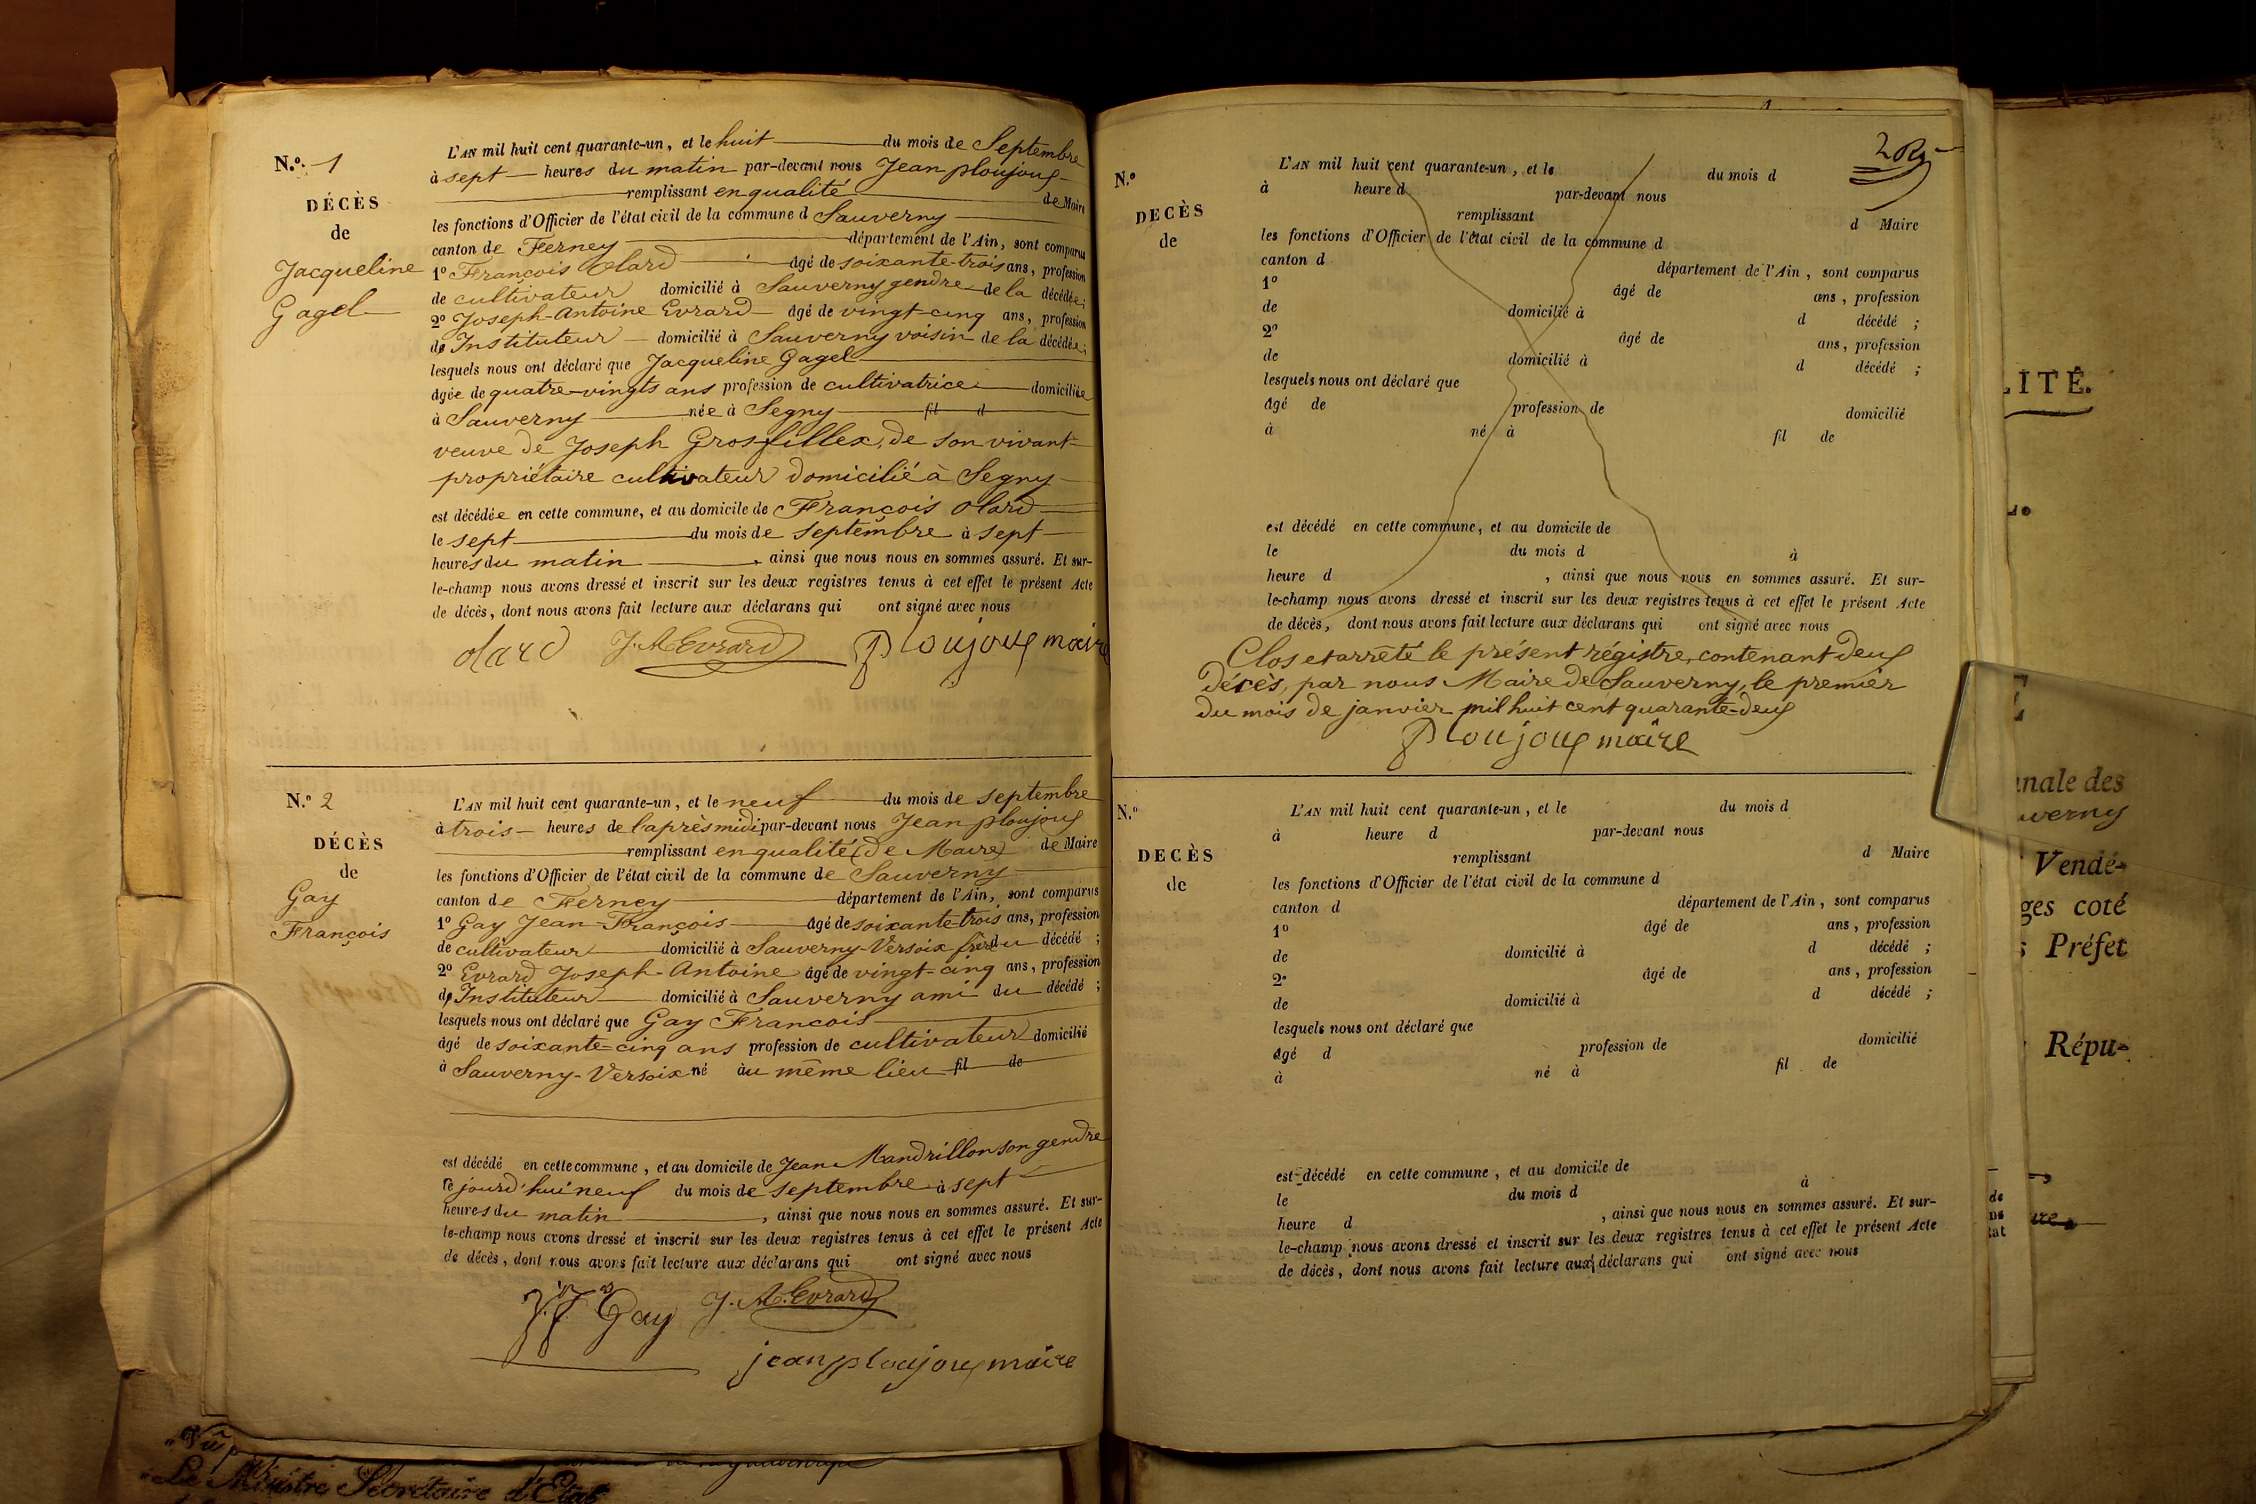 N.º 1
DÉCÈS
de
Jacqueline
Gagel
L'AN mil huit cent quarante-un, et le huit du mois de Septembre
à sept heures du matin par-devant nous Jean ploujoux
remplissant en qualité de Maire
les fonctions d'Officier de l'état civil de la commune d Sauverny
canton de Ferney département de l'Ain, sont comparus
1º François olard âgé de soixante-trois ans, profession
de cultivateur domicilié à Sauverny gendre de la décédée;
2º Joseph-Antoine Evrard âgé de vingt-cinq ans, profession
de Instituteur domicilié à Sauverny voisin de la décédée;
lesquels nous ont déclaré que Jacqueline Gagel
âgée de quatre-vingts ans profession de cultivatrice domiciliée
à Sauverny née à Segny fil d
veuve de Joseph Grosfillex, de son vivant
propriétaire cultivateur domicilié à Segny
est décédée en cette commune, et au domicile de François olard
le sept du mois de septembre à sept
heures du matin, ainsi que nous nous en sommes assuré. Et sur-
le-champ nous avons dressé et inscrit sur les deux registres tenus à cet effet le présent Acte
de décès, dont nous avons fait lecture aux déclarans qui ont signé avec nous
olard J. A. Evrard Ploujoux maire
N.º 2
DÉCÈS
de
Gay
François
L'AN mil huit cent quarante-un, et le neuf du mois de septembre
à trois heures de l'après midi par-devant nous Jean ploujoux
remplissant en qualité (de Maire) de Maire
les fonctions d'Officier de l'état civil de la commune de Sauverny
canton de Ferney département de l'Ain, sont comparus
1º Gay Jean-François âgé de soixante trois ans, profession
de cultivateur domicilié à Sauverny-Versoix frère du décédé;
2º Evrard Joseph-Antoine âgé de vingt-cinq ans, profession
de Instituteur domicilié à Sauverny ami du décédé;
lesquels nous ont déclaré que Gay François
âgé de soixante-cinq ans profession de cultivateur domicilié
à Sauverny-Versoix né au même lieu fil de
est décédé en cette commune, et au domicile de Jean Mandrillon son gendre
ce jourd'hui neuf du mois de septembre à sept
heures du matin, ainsi que nous nous en sommes assuré. Et sur-
le-champ nous avons dressé et inscrit sur les deux registres tenus à cet effet le présent Acte
de décès, dont nous avons fait lecture aux déclarans qui ont signé avec nous
J. F. Gay J. A. Evrard
jean ploujoux maire
N.º
DECÈS
de
L'AN mil huit cent quarante-un, et le du mois d
à heure d par-devant nous
remplissant d Maire
les fonctions d'Officier de l'état civil de la commune d
canton d département de l'Ain, sont comparus
1º âgé de ans, profession
de domicilié à d décédé;
2º âgé de ans, profession
de domicilié à d décédé;
lesquels nous ont déclaré que
âgé de profession de domicilié
à né à fil de
est décédé en cette commune, et au domicile de
le du mois d à
heure d, ainsi que nous nous en sommes assuré. Et sur-
le-champ nous avons dressé et inscrit sur les deux registres tenus à cet effet le présent Acte
de décès, dont nous avons fait lecture aux déclarans qui ont signé avec nous
Clos et arrêté le présent régistre, contenant deux
décès, par nous Maire de Sauverny, le premier
du mois de janvier mil huit cent quarante-deux
Ploujoux maire
N.º
DECÈS
de
L'AN mil huit cent quarante-un, et le du mois d
à heure d par-devant nous
remplissant d Maire
les fonctions d'Officier de l'état civil de la commune d
canton d département de l'Ain, sont comparus
1º âgé de ans, profession
de domicilié à d décédé;
2º âgé de ans, profession
de domicilié à d décédé;
lesquels nous ont déclaré que
âgé d profession de domicilié
à né à fil de
est décédé en cette commune, et au domicile de
le du mois d à
heure d, ainsi que nous nous en sommes assuré. Et sur-
le-champ nous avons dressé et inscrit sur les deux registres tenus à cet effet le présent Acte
de décès, dont nous avons fait lecture aux déclarans qui ont signé avec nous
LITÉ.
nale des
uverny
Vendé-
ges coté
Préfet
Répu-
Vu
Le Ministre Secrétaire d'Etat